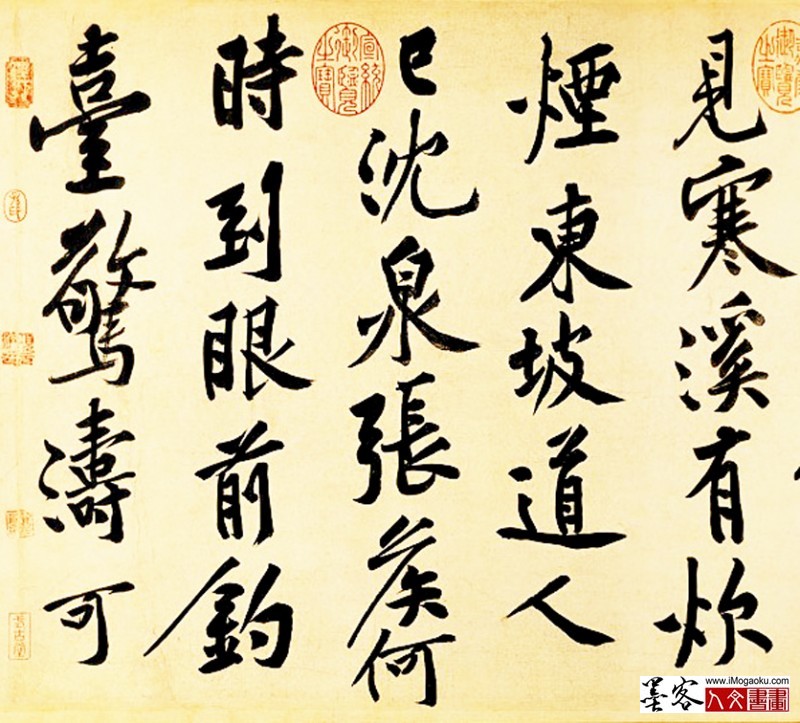 見寒溪有炊
煙東坡道人
已沈泉張侯何
時到眼前釣
臺驚濤可
宣統御覽之寶
墨客
www.iMogaoku.com
人文書畫